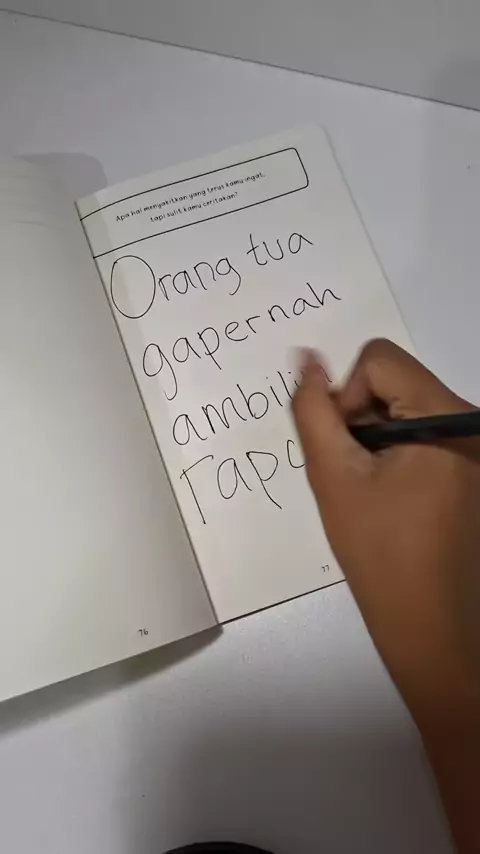 Apa hal menyakitkan yang terus kamu ingat,
tapi sulit kamu ceritakan?
Orang tua
gapernah
77
76